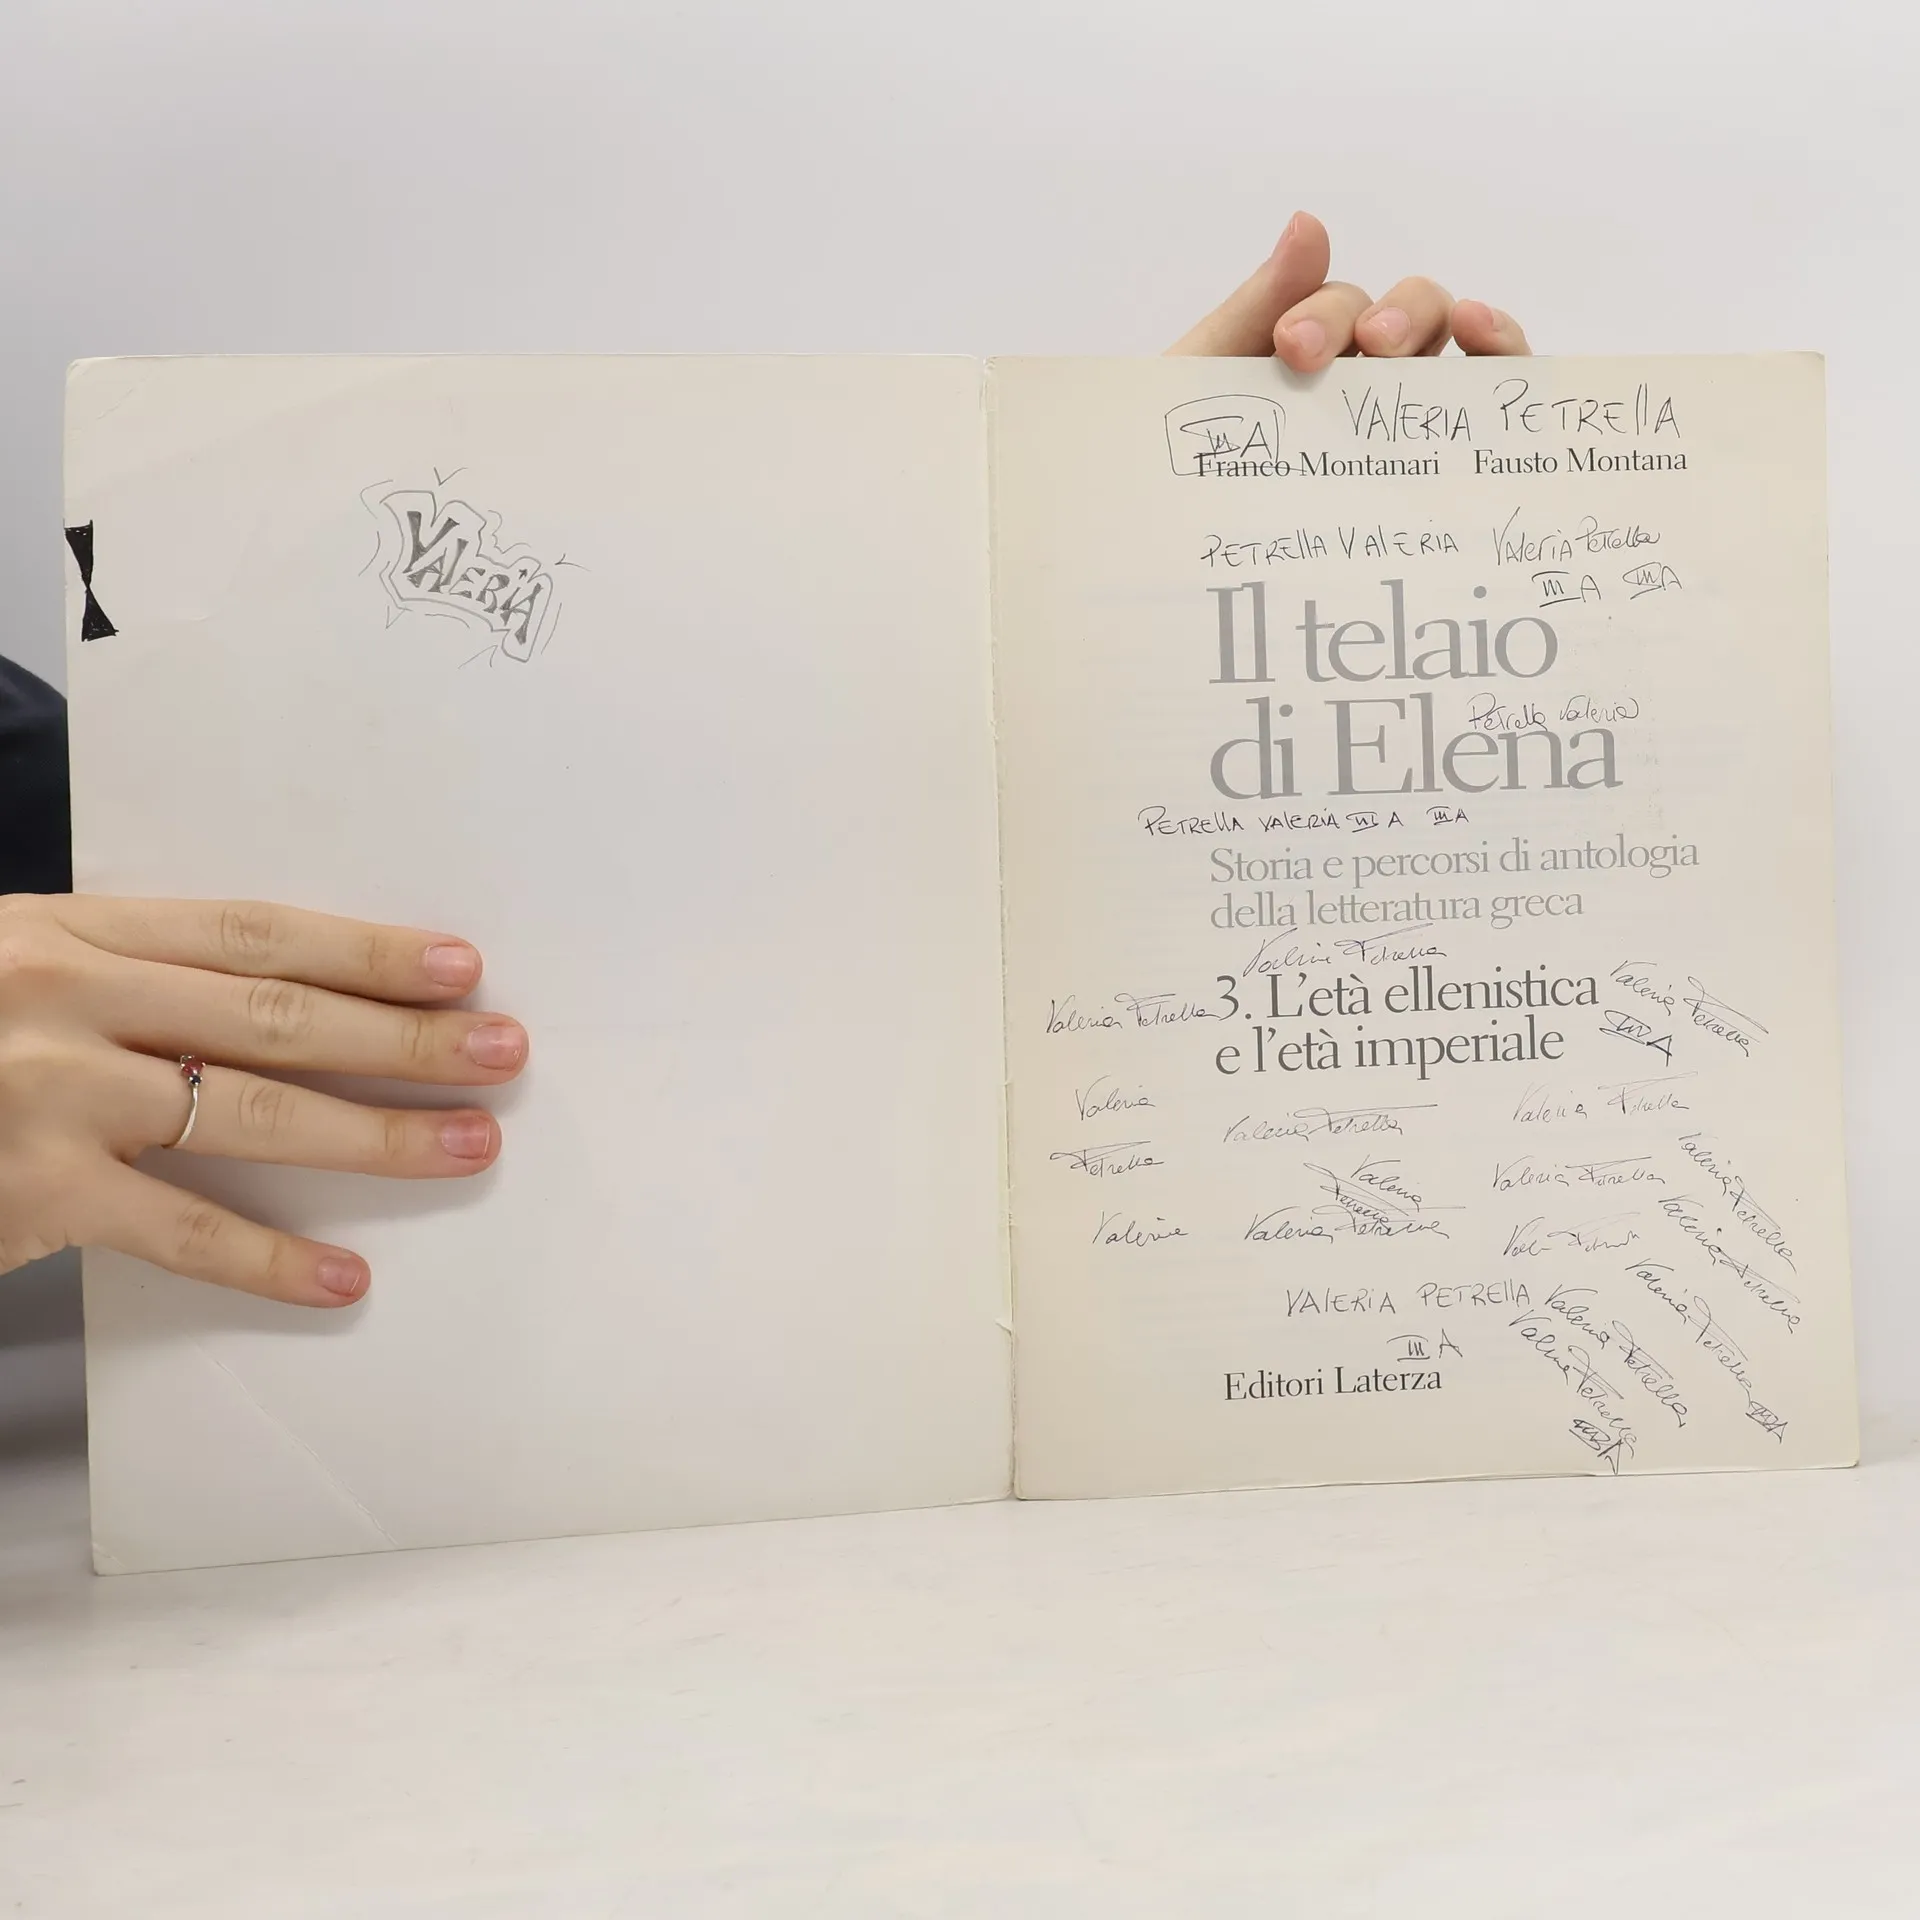 VALERIA
III A VALERIA PETRELLA
Franco Montanari Fausto Montana
PETRELLA VALERIA Valeria Petrella
III A III A
Il telaio
di Elena
Petrella Valeria
PETRELLA VALERIA III A III A
Storia e percorsi di antologia
della letteratura greca
Valeria Petrella
3. L'età ellenistica
e l'età imperiale
Valeria Petrella
Valeria Petrella
III A
Valeria
Petrella
Valeria Petrella
Valeria Petrella
Valeria
Petrella
Valeria Petrella
Valeria Petrella
Valeria Petrella
Valeria
Valeria Petrella
Valeria Petrella
III A
VALERIA PETRELLA
III A
Valeria Petrella
Valeria Petrella
III A
Editori Laterza